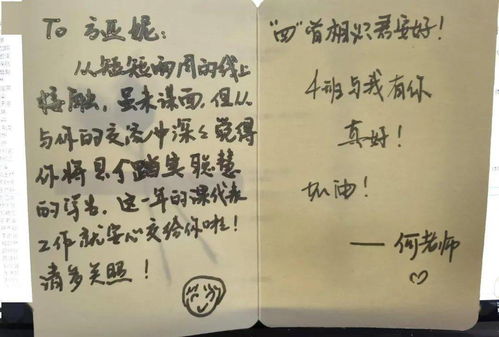 To 方亚妮：
从短短两周的线上
接触，虽未谋面，但从
与你的交流中深深觉得
你将是个踏实聪慧
的学生，这一年的课代表
工作就安心交给你啦！
请多关照！
"四"首相必君安好！
4班与我有你
真好！
加油！
——何老师